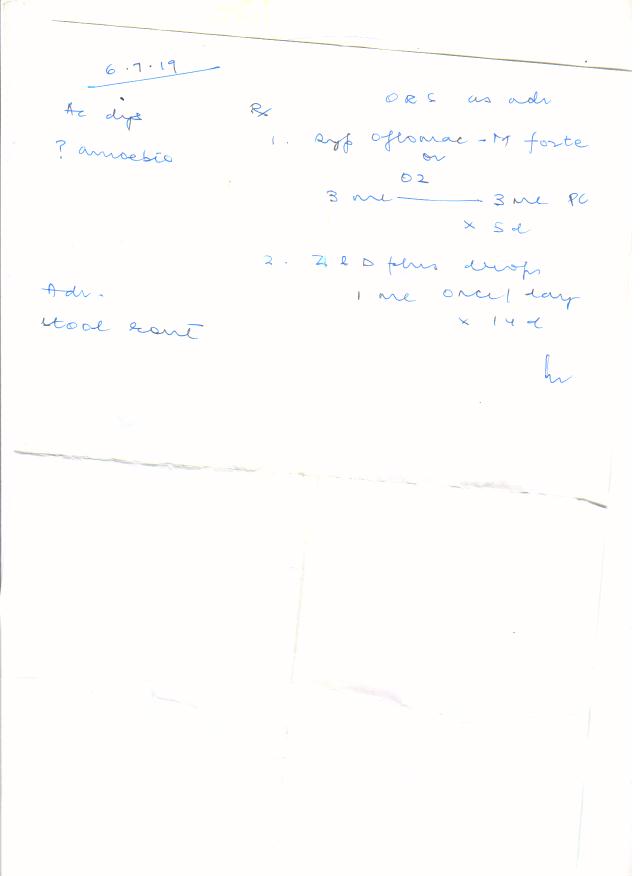 6.7.19
Ac dys
? amoebic
Rx
ORS as adv
1. syp oflomac-M forte
or
O2
3 ml — 3 ml PC
x 5 d
2. Z & D plus drops
1 ml once/day
x 14 d
Adv.
stool rout